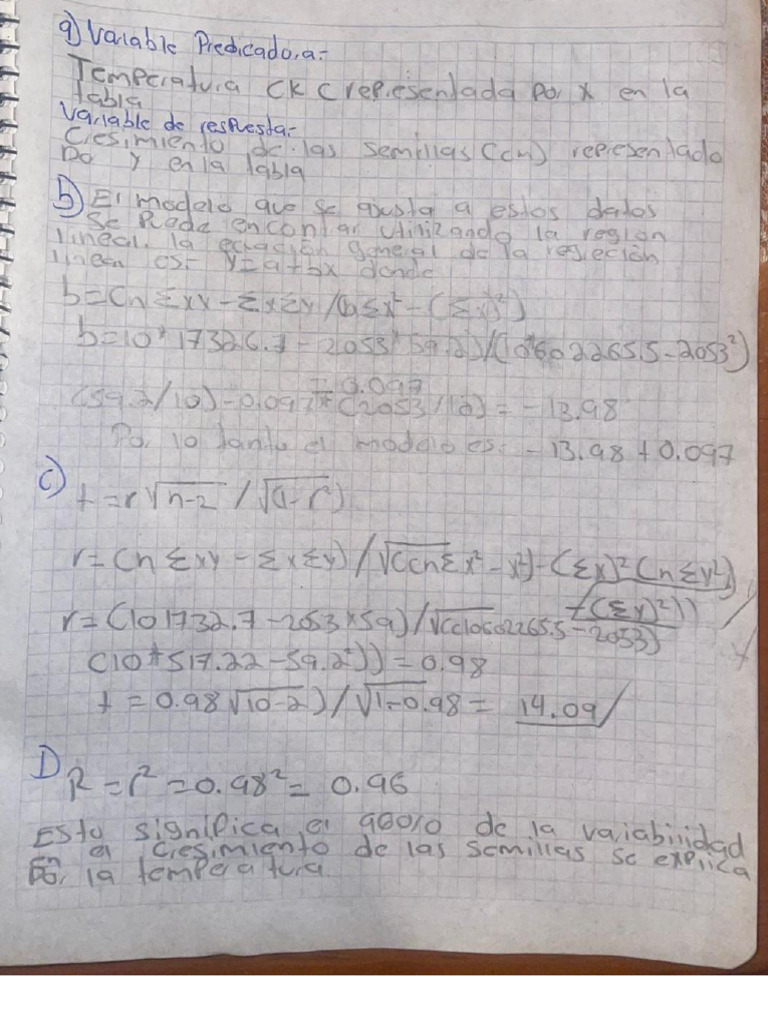 a) Variable Predicadora:-
Temperatura CK C representada por x en la
tabla
Variable de respuesta:-
Cresimiento de las semillas (cm) representado
Po Y en la tabla
b) El modelo que se ajusta a estos datos
se puede encontar utilizando la region
lineal. la ecuación general de la
lineal es:- y=a+bx donde
b=Cn Σxy - ΣxΣy /(nΣx² - (Σx)²)
b=10* 17326.7 - 2053* 59.2)/(10*602265.5-2053²)
= 0.097
(59.2/10)-0.097*(2053/10) = -13.98
Po lo tanto el modelo es:- -13.98 + 0.097
c)
t=r√n-2 / √(1-r²)
r=Cn Σxy - ΣxΣy)/√CCnΣx² - x²)-(Σx)²(nΣy²)
-(Σy)²))
r=(101732.7-2053*59)/√CC10602265.5-2053)
C10*517.22-59.2²))=0.98
t=0.98√10-2)/√1-0.98= 14.09/
D) R=r²=0.98²= 0.96
Esto significa el 960/0 de la vaiabilidad
en el cresimiento de las semillas se explica
Por la tempeatura